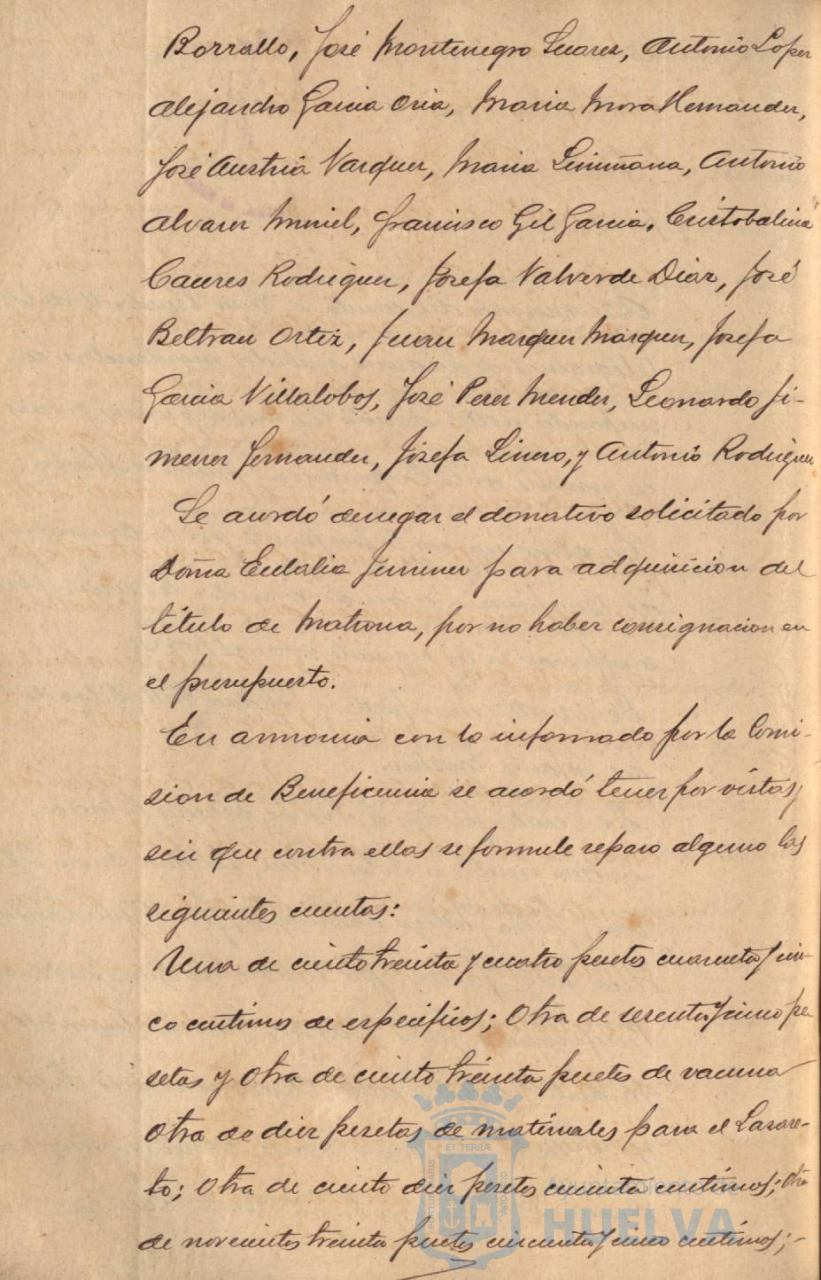 Borrallo, José Montenegro Suarez, Antonio Lopez
Alejandro Garcia Oria, Maria Mora Hernandez,
José Austria Vazquez, Maria Liniñana, Antonio
Alvarez Muniel, Francisco Gil Garcia, Cristobalina
Caceres Rodriguez, Josefa Valverde Diaz, José
Beltran Ortiz, Juan Marquez Marquez, Josefa
Garcia Villalobos, José Perez Mendez, Leonardo Ji-
menez Fernandez, Josefa Linero, y Antonio Rodriguez
Se acordó denegar el donativo solicitado por
Doña Eulalia Jimenez para adquisicion del
título de Matrona, por no haber consignacion en
el presupuesto.
En armonia con lo informado por la Comi-
sion de Beneficencia se acordó tener por vistas y
sin que contra ellas se formule reparo alguno las
siguientes cuentas:
Una de ciento treinta y cuatro pesetas cuarenta y cin-
co centimos de especificos; Otra de sesenta y cinco pe
setas y Otra de ciento treinta pesetas de vacuna
Otra de diez pesetas de materiales para el Lazare-
to; Otra de ciento diez pesetas centimos; Otra
de novecientos treinta pesetas cincuenta y cinco centimos;-
HUELVA